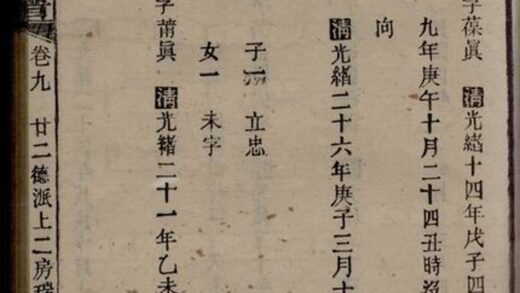 字葆眞 清光緒十四年戊子四
九年庚午十月二十四丑時沒
向
清光緒二十六年庚子三月十
子一 立忠
女一 未字
字莆眞 清光緒二十一年乙未
卷九 廿二德派上二房瑞